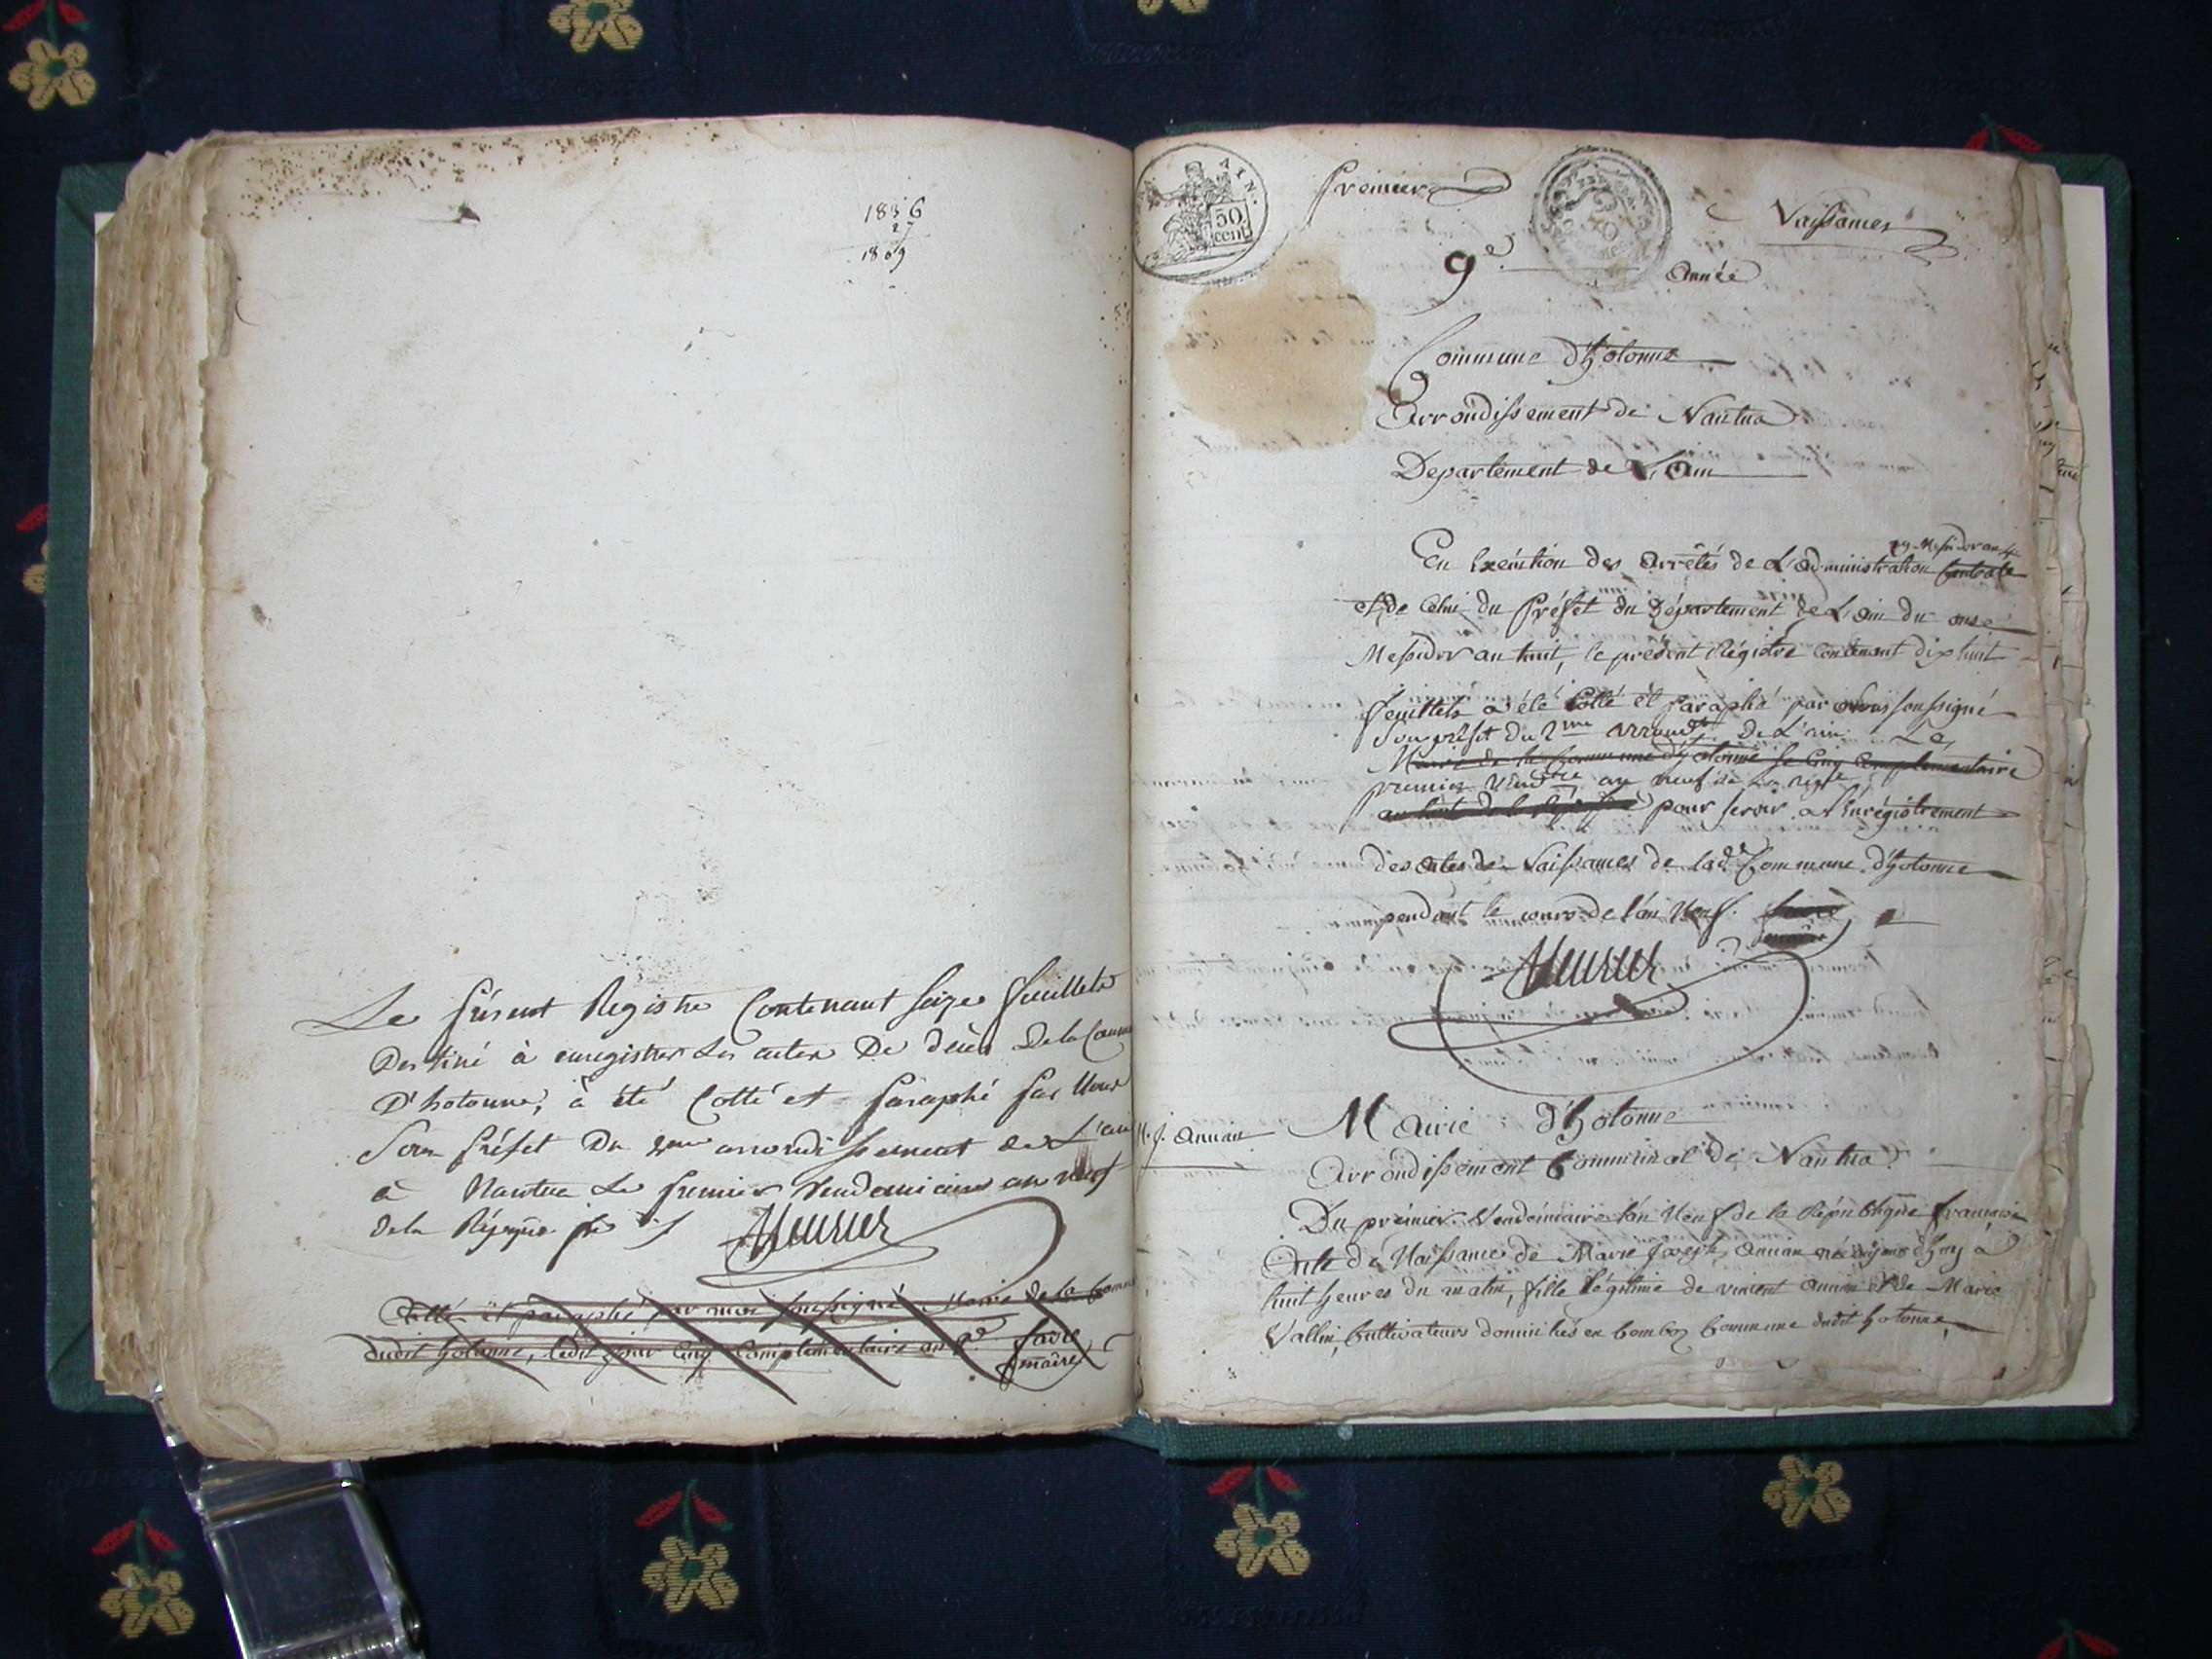 1836
27
1809
Le présent Registre Contenant seize feuillets
Destiné à enregistrer Les actes De décès De la Comm
D'hotonne, à été Cotté et paraphé par Nous
Sous préfet Du 2me arrondissement de L'ain
à Nantua Le premier Vendemiaire an neuf
de la Répque fse
Meunier
Cotté et paraphé par moi soussigné Maire de la Comm
dudit hotonne, ledit jour cinq Complémentaire an 8e favre
maire
AIN.
50
cent
Premier
Naissances
9e année
Commune d'hotonne
Arrondissement de Nantua
Departement de L'Ain
19 Messidor an 4
En Exécution des Arrêtés de L'administration Centrale
et de Celui du Préfet du Département de L'ain du onze
Messidor an huit, le présent Régistre Contenant dix huit
feuillets a été Cotté et Paraphé par Nous soussigné
Sous préfet du 2me arrondt De L'ain Le
Maire de la Commune d'hotonne le Cinq Complementaire
premier Vendre an neuf de la Repe
an huit de la Répque pour servir à L'Enrégistrement
des actes de Naissances de lade Commune d'hotonne
pendant le cours de l'an Neuf. favre
maire
Meunier
M. J. Annan
Mairie d'hotonne
Arrondissement Communal de Nantua
Du prémier Vendémiaire l'an Neuf de la République francaise
Acte de Naissance de Marie Joseph Annan né aujourd'huy à
huit heures du matin, fille légitime de vincent Annan et de Marie
Vallin, Cultivateurs domiciliés en Commune dudit hotonne